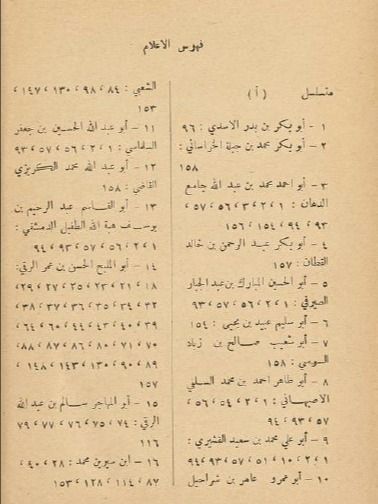 فهرس الاعلام
متسلسل ( أ )
١ - أبو بكر بن بدر الاسدي : ٩٦
٢ - أبو بكر محمد بن جبلة الخراساني :
١٥٨
٣ - أبو احمد محمد بن عبد الله جامع
الدهان : ١، ٢، ٣، ٥٦، ٥٧،
٩٣، ٩٤، ١٥٤، ١٥٦
٤ - أبو بكر عبد الرحمن بن خالد
القطان : ١٥٧
٥ - أبو الحسين المبارك بن عبد الجبار
الصيرفي : ١، ٢، ٥٦، ٥٧، ٩٣
٦ - أبو سليم عبيد بن يحيى : ١٥٤
٧ - أبو شعيب صالح بن زياد
السوسي : ١٥٨
٨ - أبو طاهر احمد بن محمد السلفي
الاصبهاني : ١، ٢، ٥٤، ٥٦،
٥٧، ٩٣، ٩٤
٩ - أبو علي محمد بن سعيد القشيري :
١، ٢، ١٠، ٥١، ٥٧، ٩٣، ٩٤
١٠ - أبو عمرو عامر بن شراحيل
الشعبي : ٨٤، ٩٨، ١٣٠، ١٤٧،
١٥٣
١١ - أبو عبد الله الحسين بن جعفر
السلماسي : ١، ٢، ٥٦، ٥٧، ٩٣
١٢ - أبو عبد الله محمد الكريزي
القاضي : ١٥٨
١٣ - أبو القاسم عبد الرحيم بن
يوسف هبة الله الطفيل الدمشقي :
١، ٢، ٥٦، ٥٧، ٩٣، ٩٤
١٤ - أبو المليح الحسن بن عمر الرقي :
١٨، ٢١، ٢٣، ٢٥، ٢٧، ٢٩،
٣٢، ٣٤، ٣٥، ٣٦، ٣٧، ٣٨،
٣٩، ٤٠، ٤٣، ٤٤، ٦٠، ٦٤،
٧٠، ٧١، ٨٠، ٨٦، ٨٧، ٨٨،
٨٩، ٩٠، ١٣٠، ١٤٣، ١٤٨،
١٥٧
١٥ - أبو المهاجر سالم بن عبد الله
الرقي : ٧٤، ٧٥، ٧٦، ٧٧، ٧٩
١١٦
١٦ - ابن سيرين محمد : ٢٨، ٤٠،
٨٧، ١١٤، ١٢٨، ١٥٣